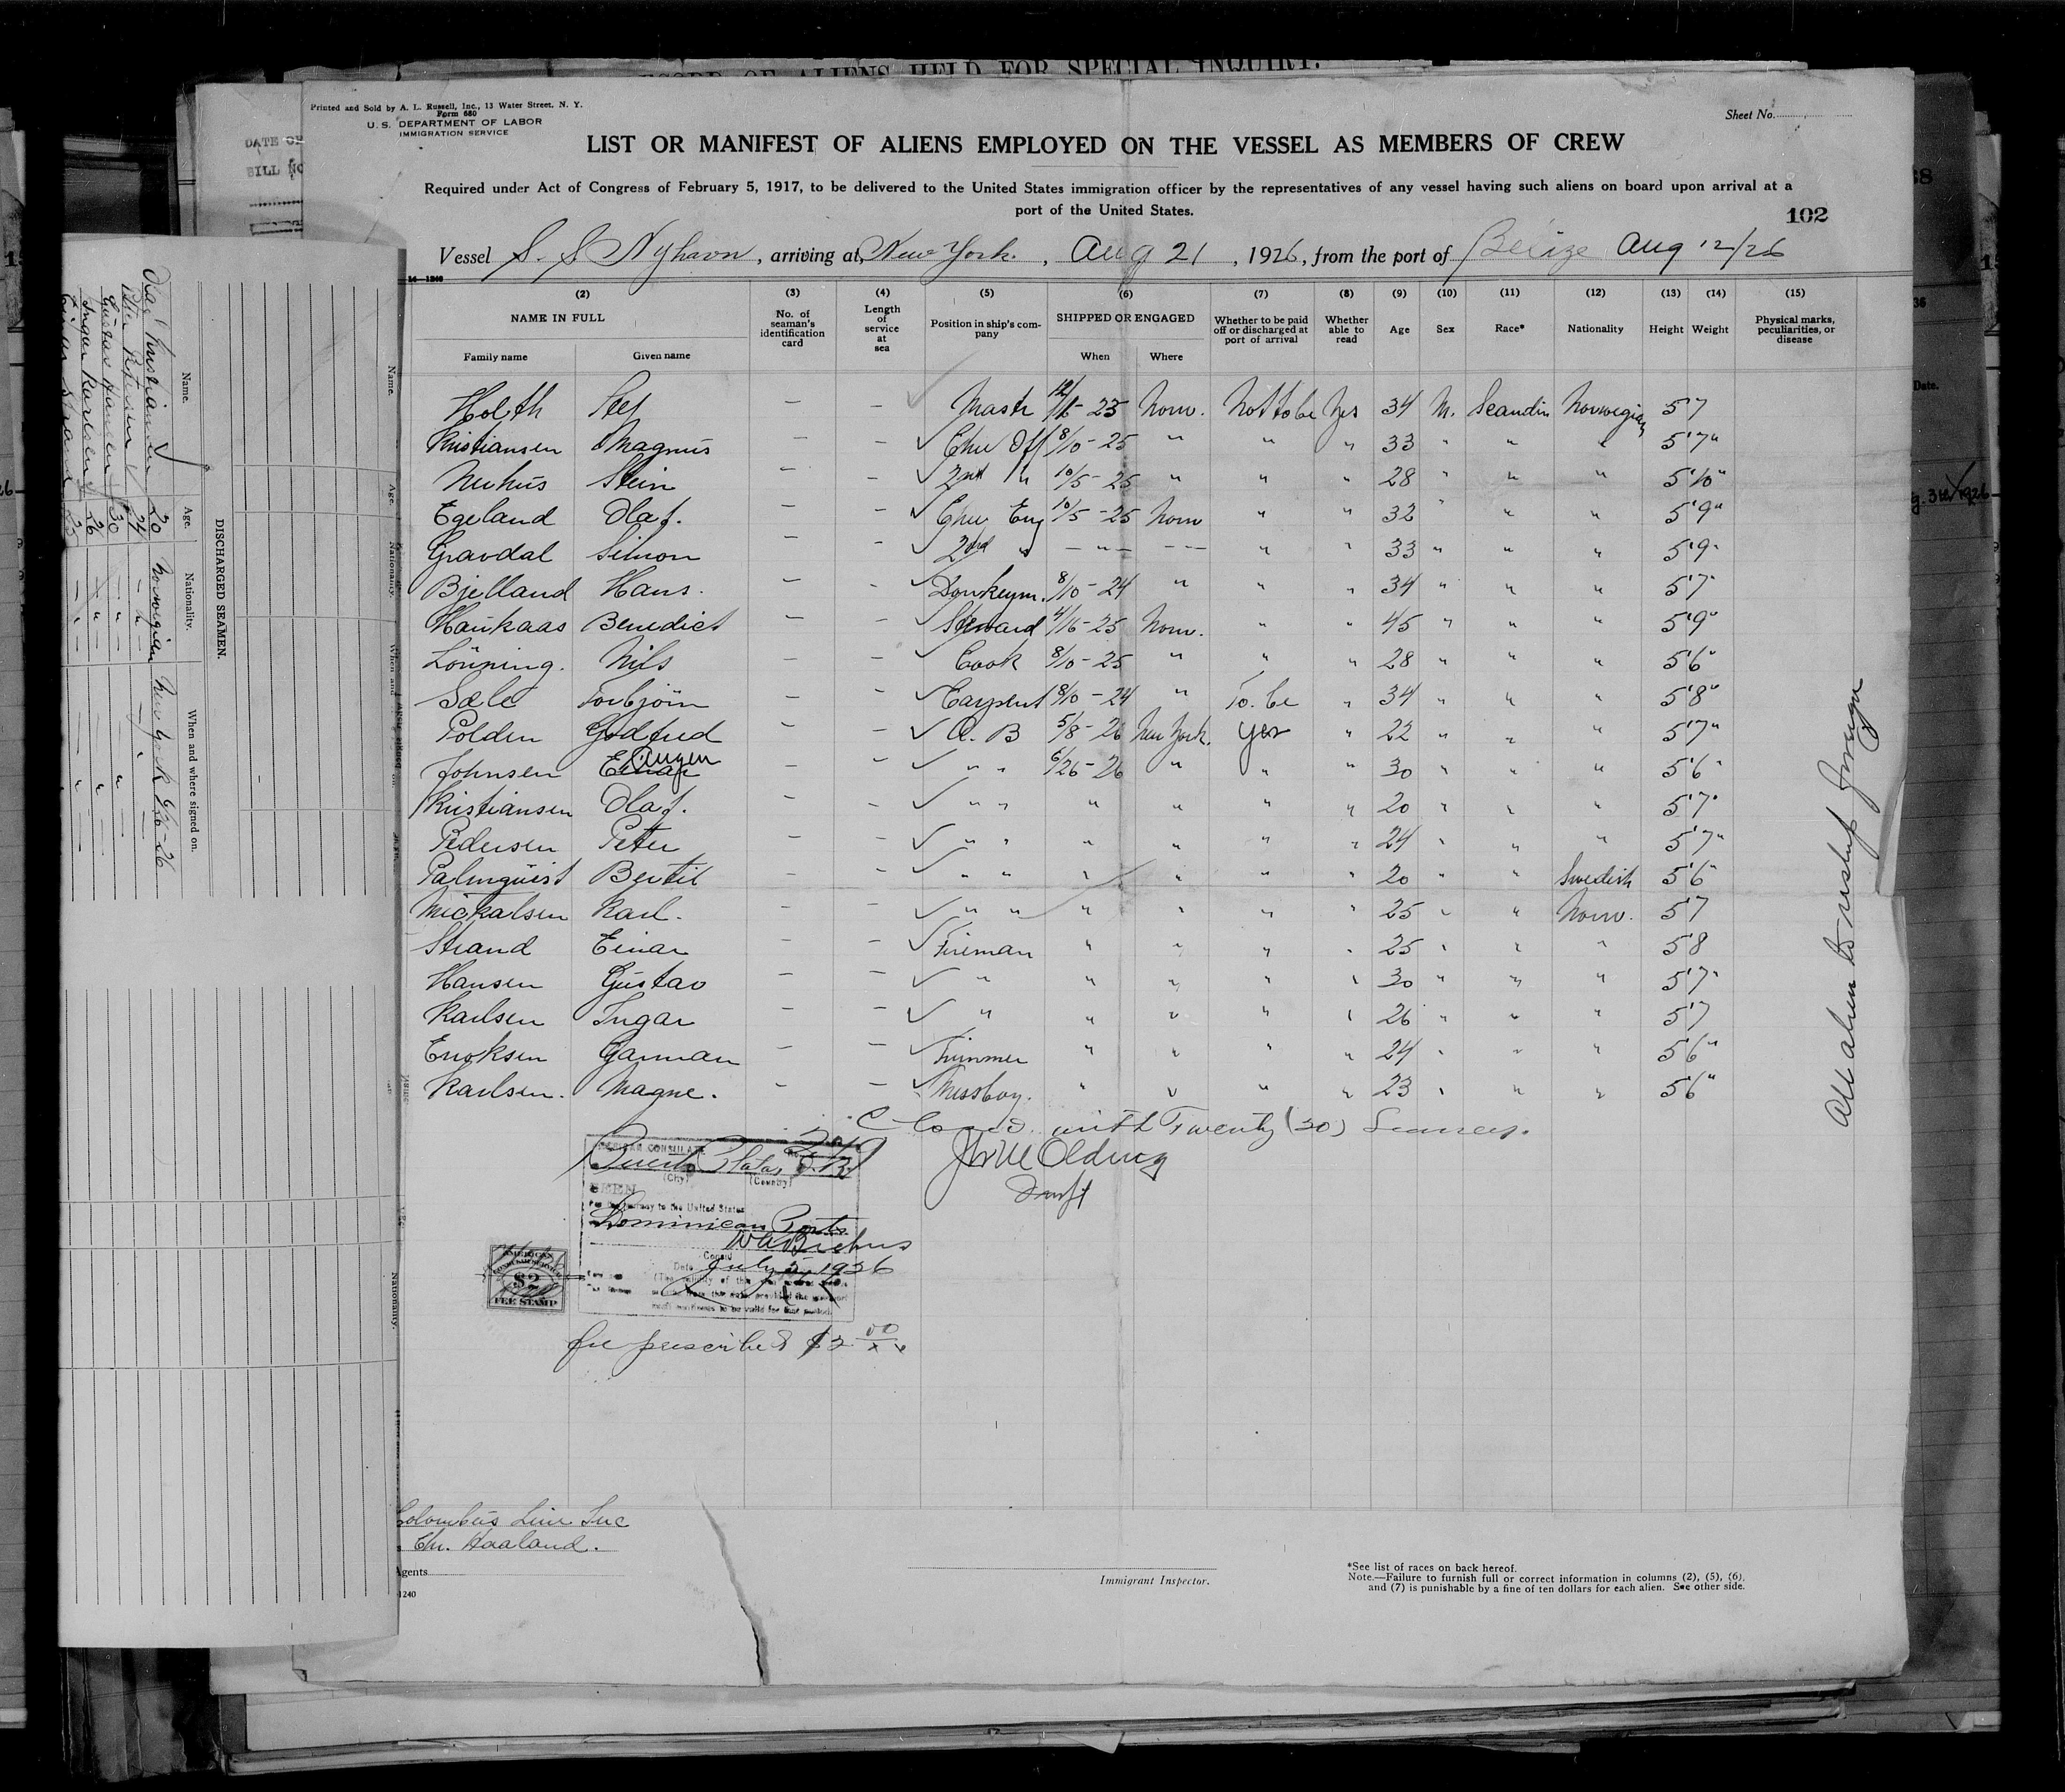 RECORD OF ALIENS HELD FOR SPECIAL INQUIRY.
Printed and Sold by A. L. Russell, Inc., 13 Water Street, N. Y.
Form 680
U. S. DEPARTMENT OF LABOR
IMMIGRATION SERVICE
Sheet No.
LIST OR MANIFEST OF ALIENS EMPLOYED ON THE VESSEL AS MEMBERS OF CREW
Required under Act of Congress of February 5, 1917, to be delivered to the United States immigration officer by the representatives of any vessel having such aliens on board upon arrival at a
port of the United States.
102
Vessel S. S. Nyhavn, arriving at New York, Aug 21, 1926, from the port of Belize Aug 12/26
(2) (3) (4) (5) (6) (7) (8) (9) (10) (11) (12) (13) (14) (15)
NAME IN FULL
Family name Given name
No. of seaman's identification card
Length of service at sea
Position in ship's company
SHIPPED OR ENGAGED
When Where
Whether to be paid off or discharged at port of arrival
Whether able to read
Age Sex Race* Nationality Height Weight
Physical marks, peculiarities, or disease
Holth — — Mastr 12/16-23 Norw. Not to be Yes 34 M. Scandin Norwegian 5 7
Kristiansen Magnus — — Chie Off 8/10-25 " " " 33 " " " 5'7"
Nuhus Stein — — 2nd " 10/5-25 " " " 28 " " " 5'10"
Egeland Olaf. — — Chie Eng 10/5-25 Norw " " 32 " " " 5'9"
Gravdal Simon — — 2nd " — " — — — " " 33 " " " 5'9"
Bjelland Hans. — — Donkeym. 8/10-24 " " " 34 " " " 5'7"
Haukaas Benedict — — Steward 4/16-25 Norw. " " 45 " " " 5'9"
Lönning. Nils — — Cook 8/10-25 " " " 28 " " " 5'6"
Sæle Torbjörn — — Carpent 8/10-24 " To. be " 34 " " " 5'8"
Polden Godfred — — A. B 5/8-26 New York. yes " 22 " " " 5'7"
Johnsen Einar — — " " 6/26-26 " " " 30 " " " 5'6"
Kristiansen Olaf. — — " " " " " " 20 " " " 5'7"
Pedersen Peter — — " " " " " " 24 " " " 5'7"
Palmquist Bertil — — " " " " " " 20 " " Swedish 5'6"
Mickalsen Karl. — — " " " " " " 25 " " Norw. 5'7
Strand Einar — — Fireman " " " " 25 " " " 5'8
Hansen Gustav — — " " " " " 30 " " " 5'7"
Karlsen Ingar — — " " " " " 26 " " " 5'7
Eriksen Garman — — Trimmer " " " " 24 " " " 5 6"
Karlsen. Magne. — — Messboy. " " " " 23 " " " 5 6"
Closed with Twenty (20) Seamen.
AMERICAN CONSULATE
Puerto Plata, D.R.
(City) (Country)
SEEN
For the journey to the United States
Dominican Ports
Consul
Date July 1926
AMERICAN
CONSULAR SERVICE
$2
FEE STAMP
fee prescribed $2 00/xx
All aliens to reship foreign
Columbus Line Inc
Chr. Haaland.
Agents
1240
Immigrant Inspector.
*See list of races on back hereof.
Note.—Failure to furnish full or correct information in columns (2), (5), (6),
and (7) is punishable by a fine of ten dollars for each alien. See other side.
DISCHARGED SEAMEN.
Name. Age. Nationality. When and where signed on.
Kristiansen 20 Norwegian New York 6/26-26
Peter Petersen 24 — " — — " —
Gustav Hansen 30 — " — "
Ingar Karlsen 26 — " — "
Einar Strand 25 — " — "
Name. Age. Nationality.
DATE OF
BILL NO